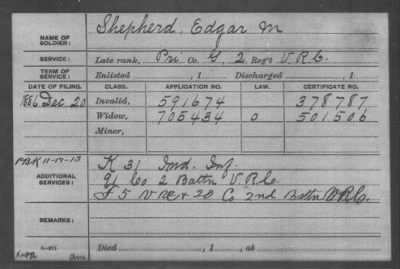 NAME OF SOLDIER: Shepherd, Edgar M
SERVICE: Late rank, Pri Co. G, 2 Reg't V.R.C.
TERM OF SERVICE: Enlisted , 1 Discharged , 1
DATE OF FILING. CLASS. APPLICATION NO. LAW. CERTIFICATE NO.
1886 Dec 20 Invalid, 591674 378787
Widow, 705434 o 501506
Minor,
PBR 11-17-13 K 31 Ind. Inf.
ADDITIONAL SERVICES: 91 Co 2 Battn V.R.C.
F 5 V RC + 20 Co 2nd Battn V.R.C.
REMARKS:
Died , 1 , at